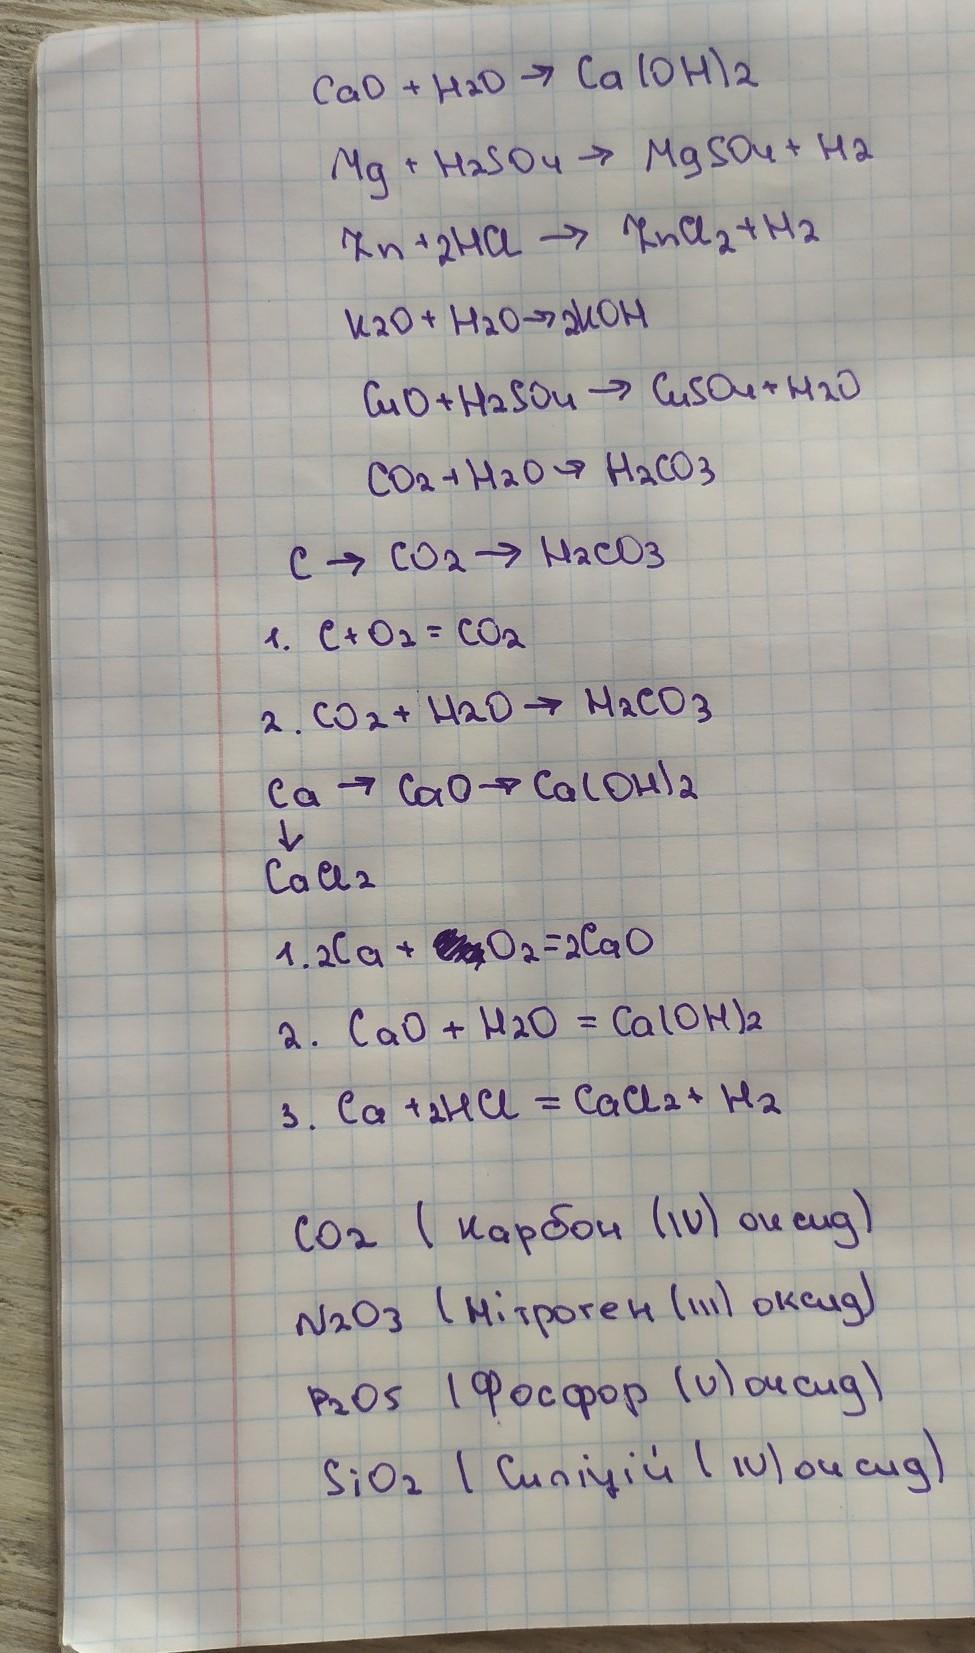 CaO + H2O → Ca(OH)2
Mg + H2SO4 → MgSO4 + H2
Zn + 2HCl → ZnCl2 + H2
K2O + H2O → 2KOH
CuO + H2SO4 → CuSO4 + H2O
CO2 + H2O → H2CO3
C → CO2 → H2CO3
1. C + O2 = CO2
2. CO2 + H2O → H2CO3
Ca → CaO → Ca(OH)2
↓
CaCl2
1. 2Ca + O2 = 2CaO
2. CaO + H2O = Ca(OH)2
3. Ca + 2HCl = CaCl2 + H2
CO2 ( Карбон (IV) оксид)
N2O3 (Нітроген (III) оксид)
P2O5 (Фосфор (V) оксид)
SiO2 ( Силіцій (IV) оксид)